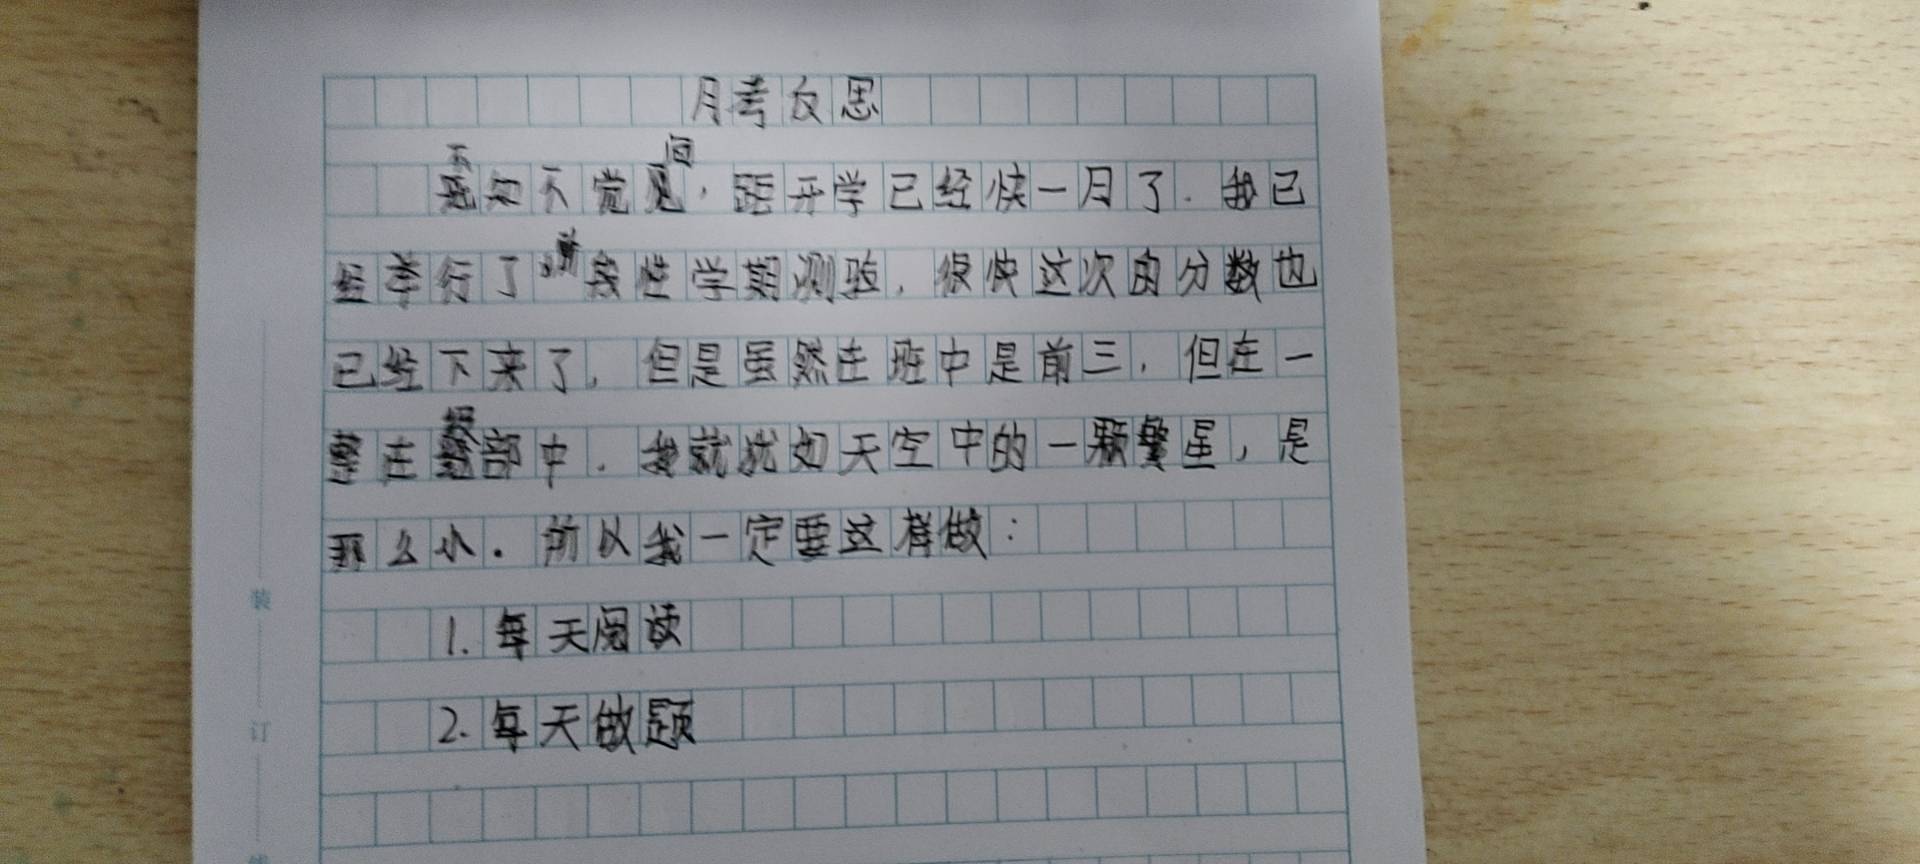 月考反思
不知不觉间，距开学已经快一月了.我已
经举行了学期测验，很快这次的分数也
已经下来了，但是虽然在班中是前三，但在一
整在部中，我就犹如天空中的一颗繁星，是
那么小.所以我一定要这样做：
1.每天阅读
2.每天做题
装
订
线